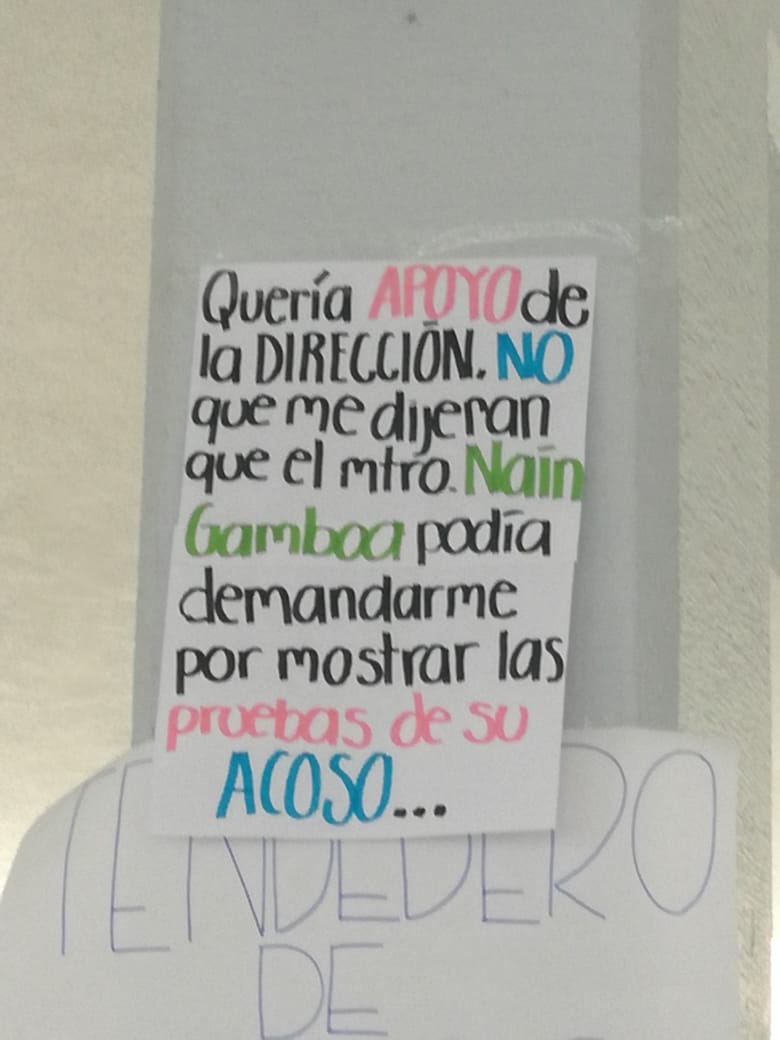 Quería APOYO de
la DIRECCIÓN. NO
que me dijeran
que el mtro. Naín
Gamboa podía
demandarme
por mostrar las
pruebas de su
ACOSO...
TENDEDERO
DE